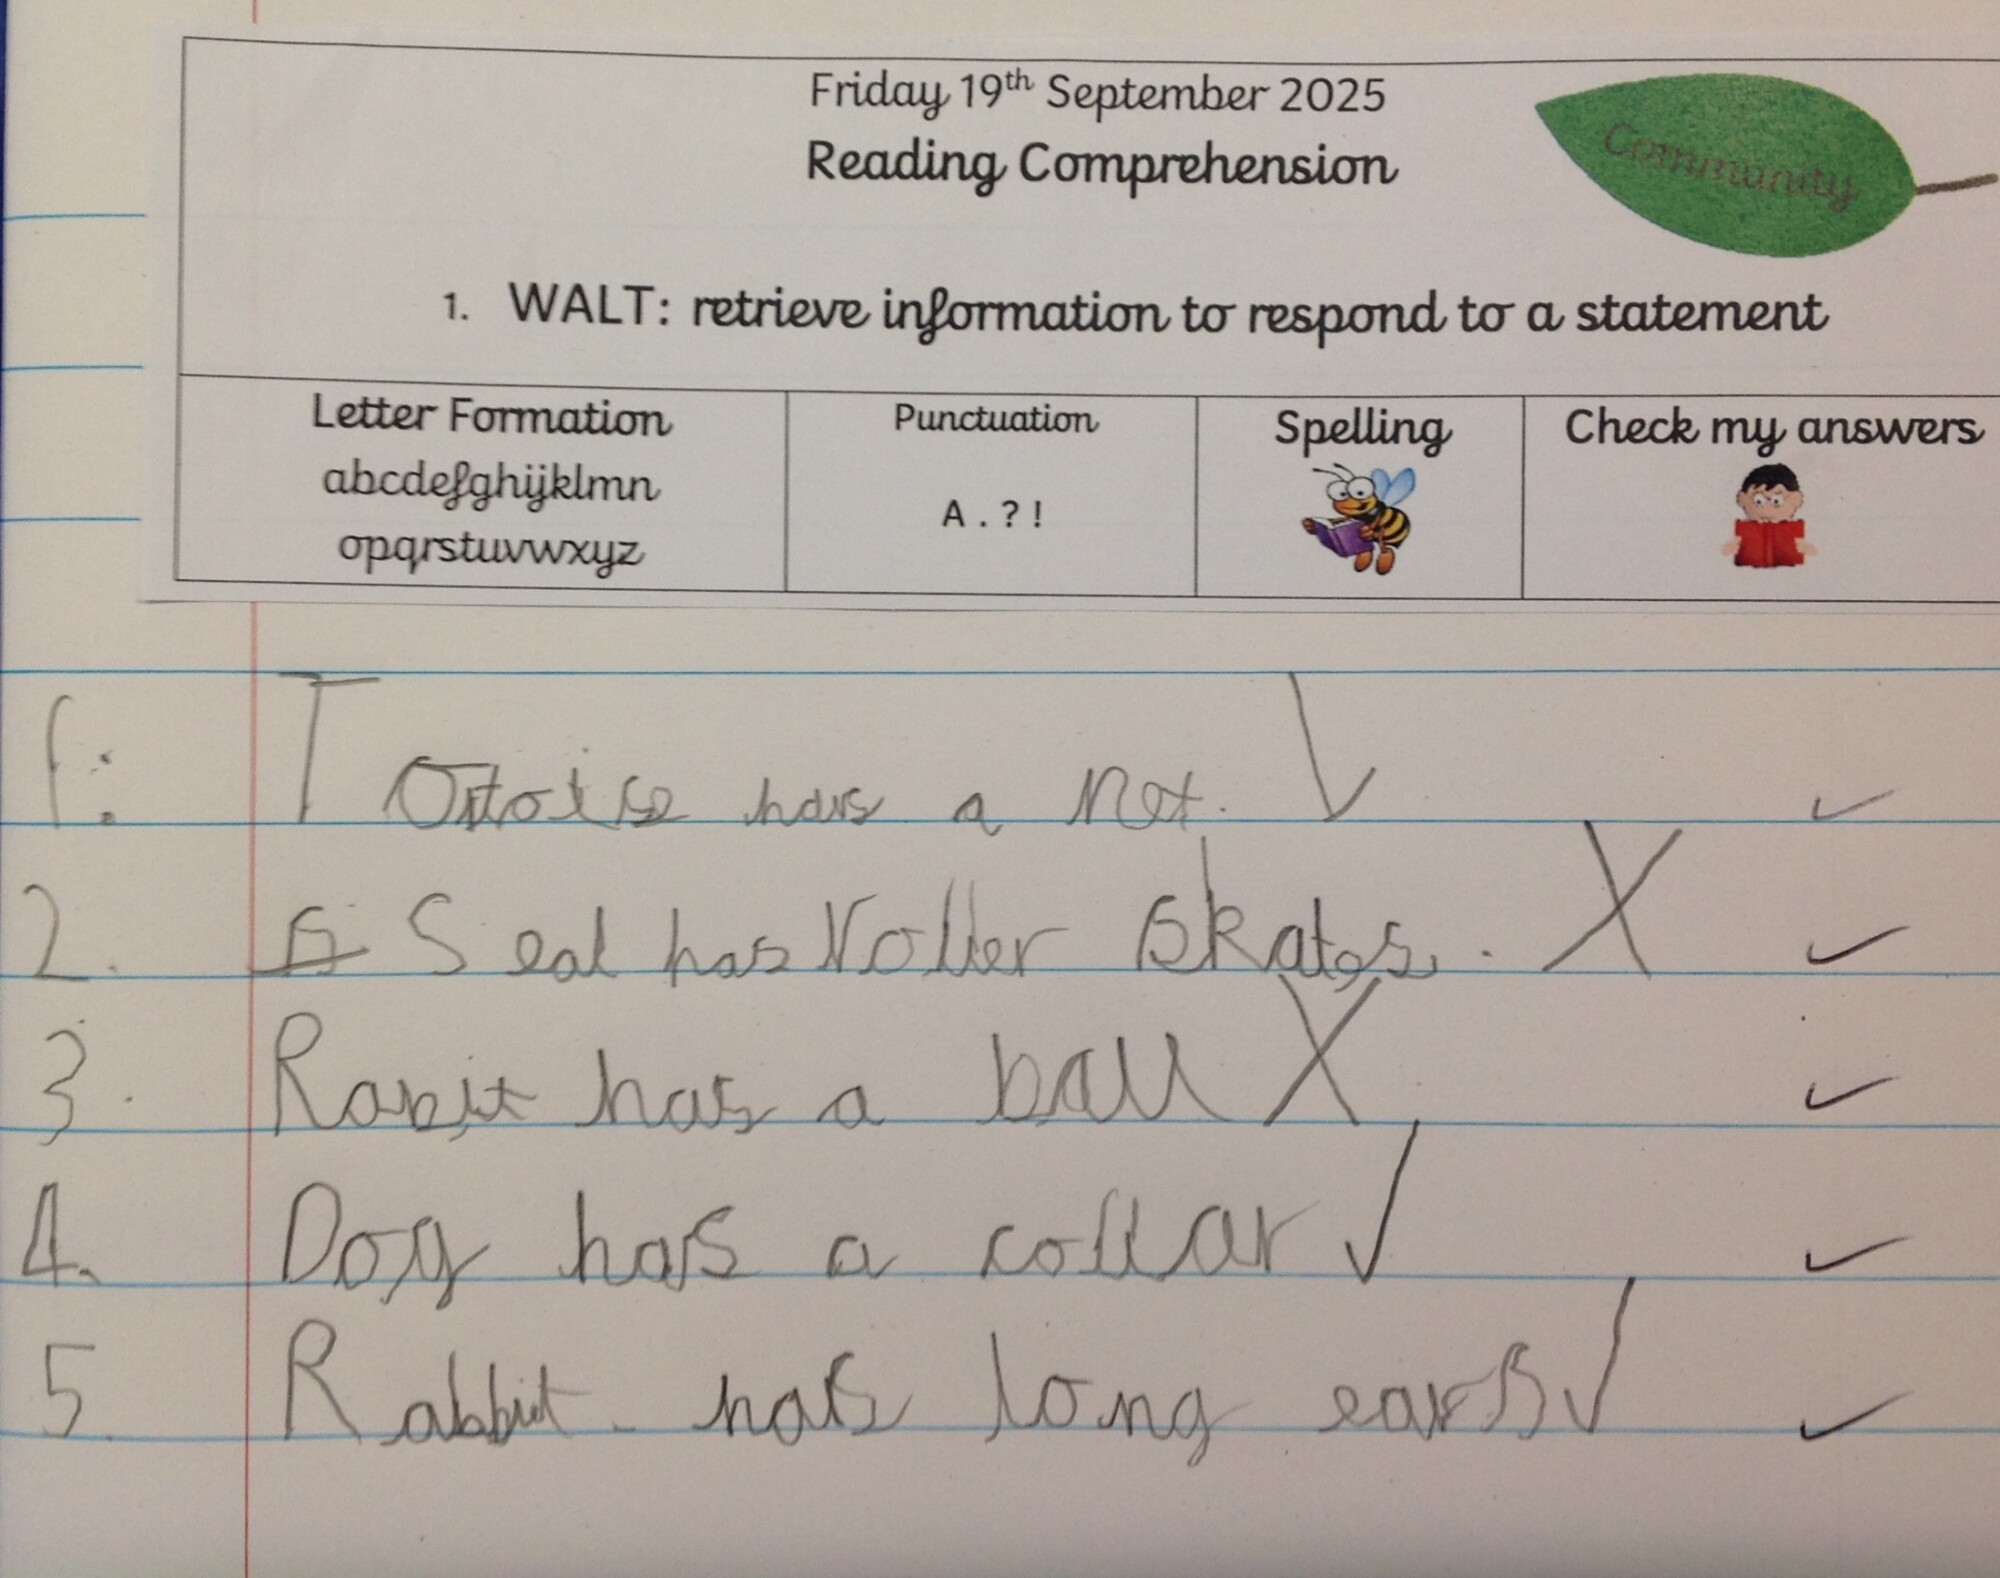 Friday 19th September 2025
Community
Reading Comprehension
1. WALT: retrieve information to respond to a statement
Letter Formation
abcdefghijklmn
opqrstuvwxyz
Punctuation
A . ? !
Spelling
Check my answers
1. Tortoise has a net. ✓ ✓
2. S Seal has roller skates. X ✓
3. Rabit has a ball X ✓
4. Dog has a collar ✓ ✓
5. Rabbit has long ears ✓ ✓